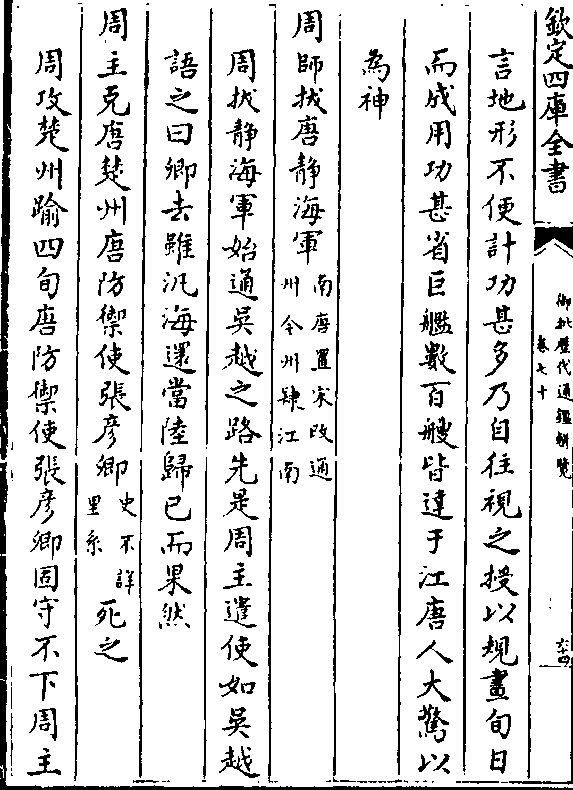 欽定四庫全書
御批歷代通鑑輯覽
卷七十
言地形不便計功甚多乃自往視之授以規畫旬日
而成用功甚省巨艦數百艘皆達于江唐人大驚以
為神
周師拔唐静海軍南唐置宋改通
州今州隸江南
周拔静海軍始通吳越之路先是周主遣使如吳越
語之曰卿去雖汎海還當陸歸已而果然
周主克唐楚州唐防禦使張彦卿史不詳
里系死之
周攻楚州踰四旬唐防禦使張彦卿固守不下周主